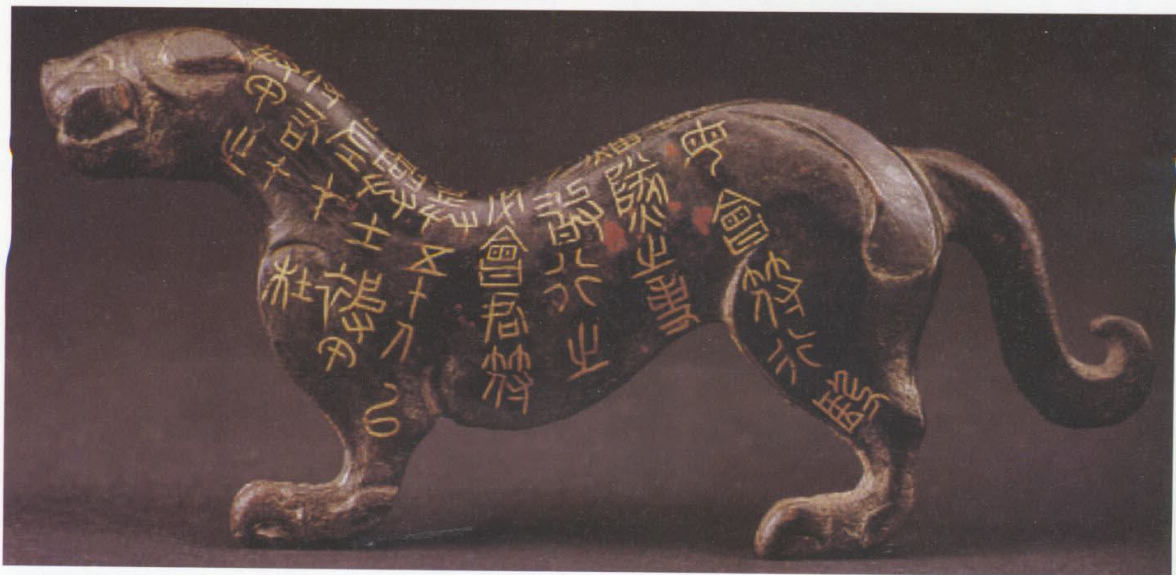 兵甲之
符右才
君左才杜
凡興士被甲
用兵五十人以上
必會君符
乃敢行之
燔燧之事
雖毋會符行殹